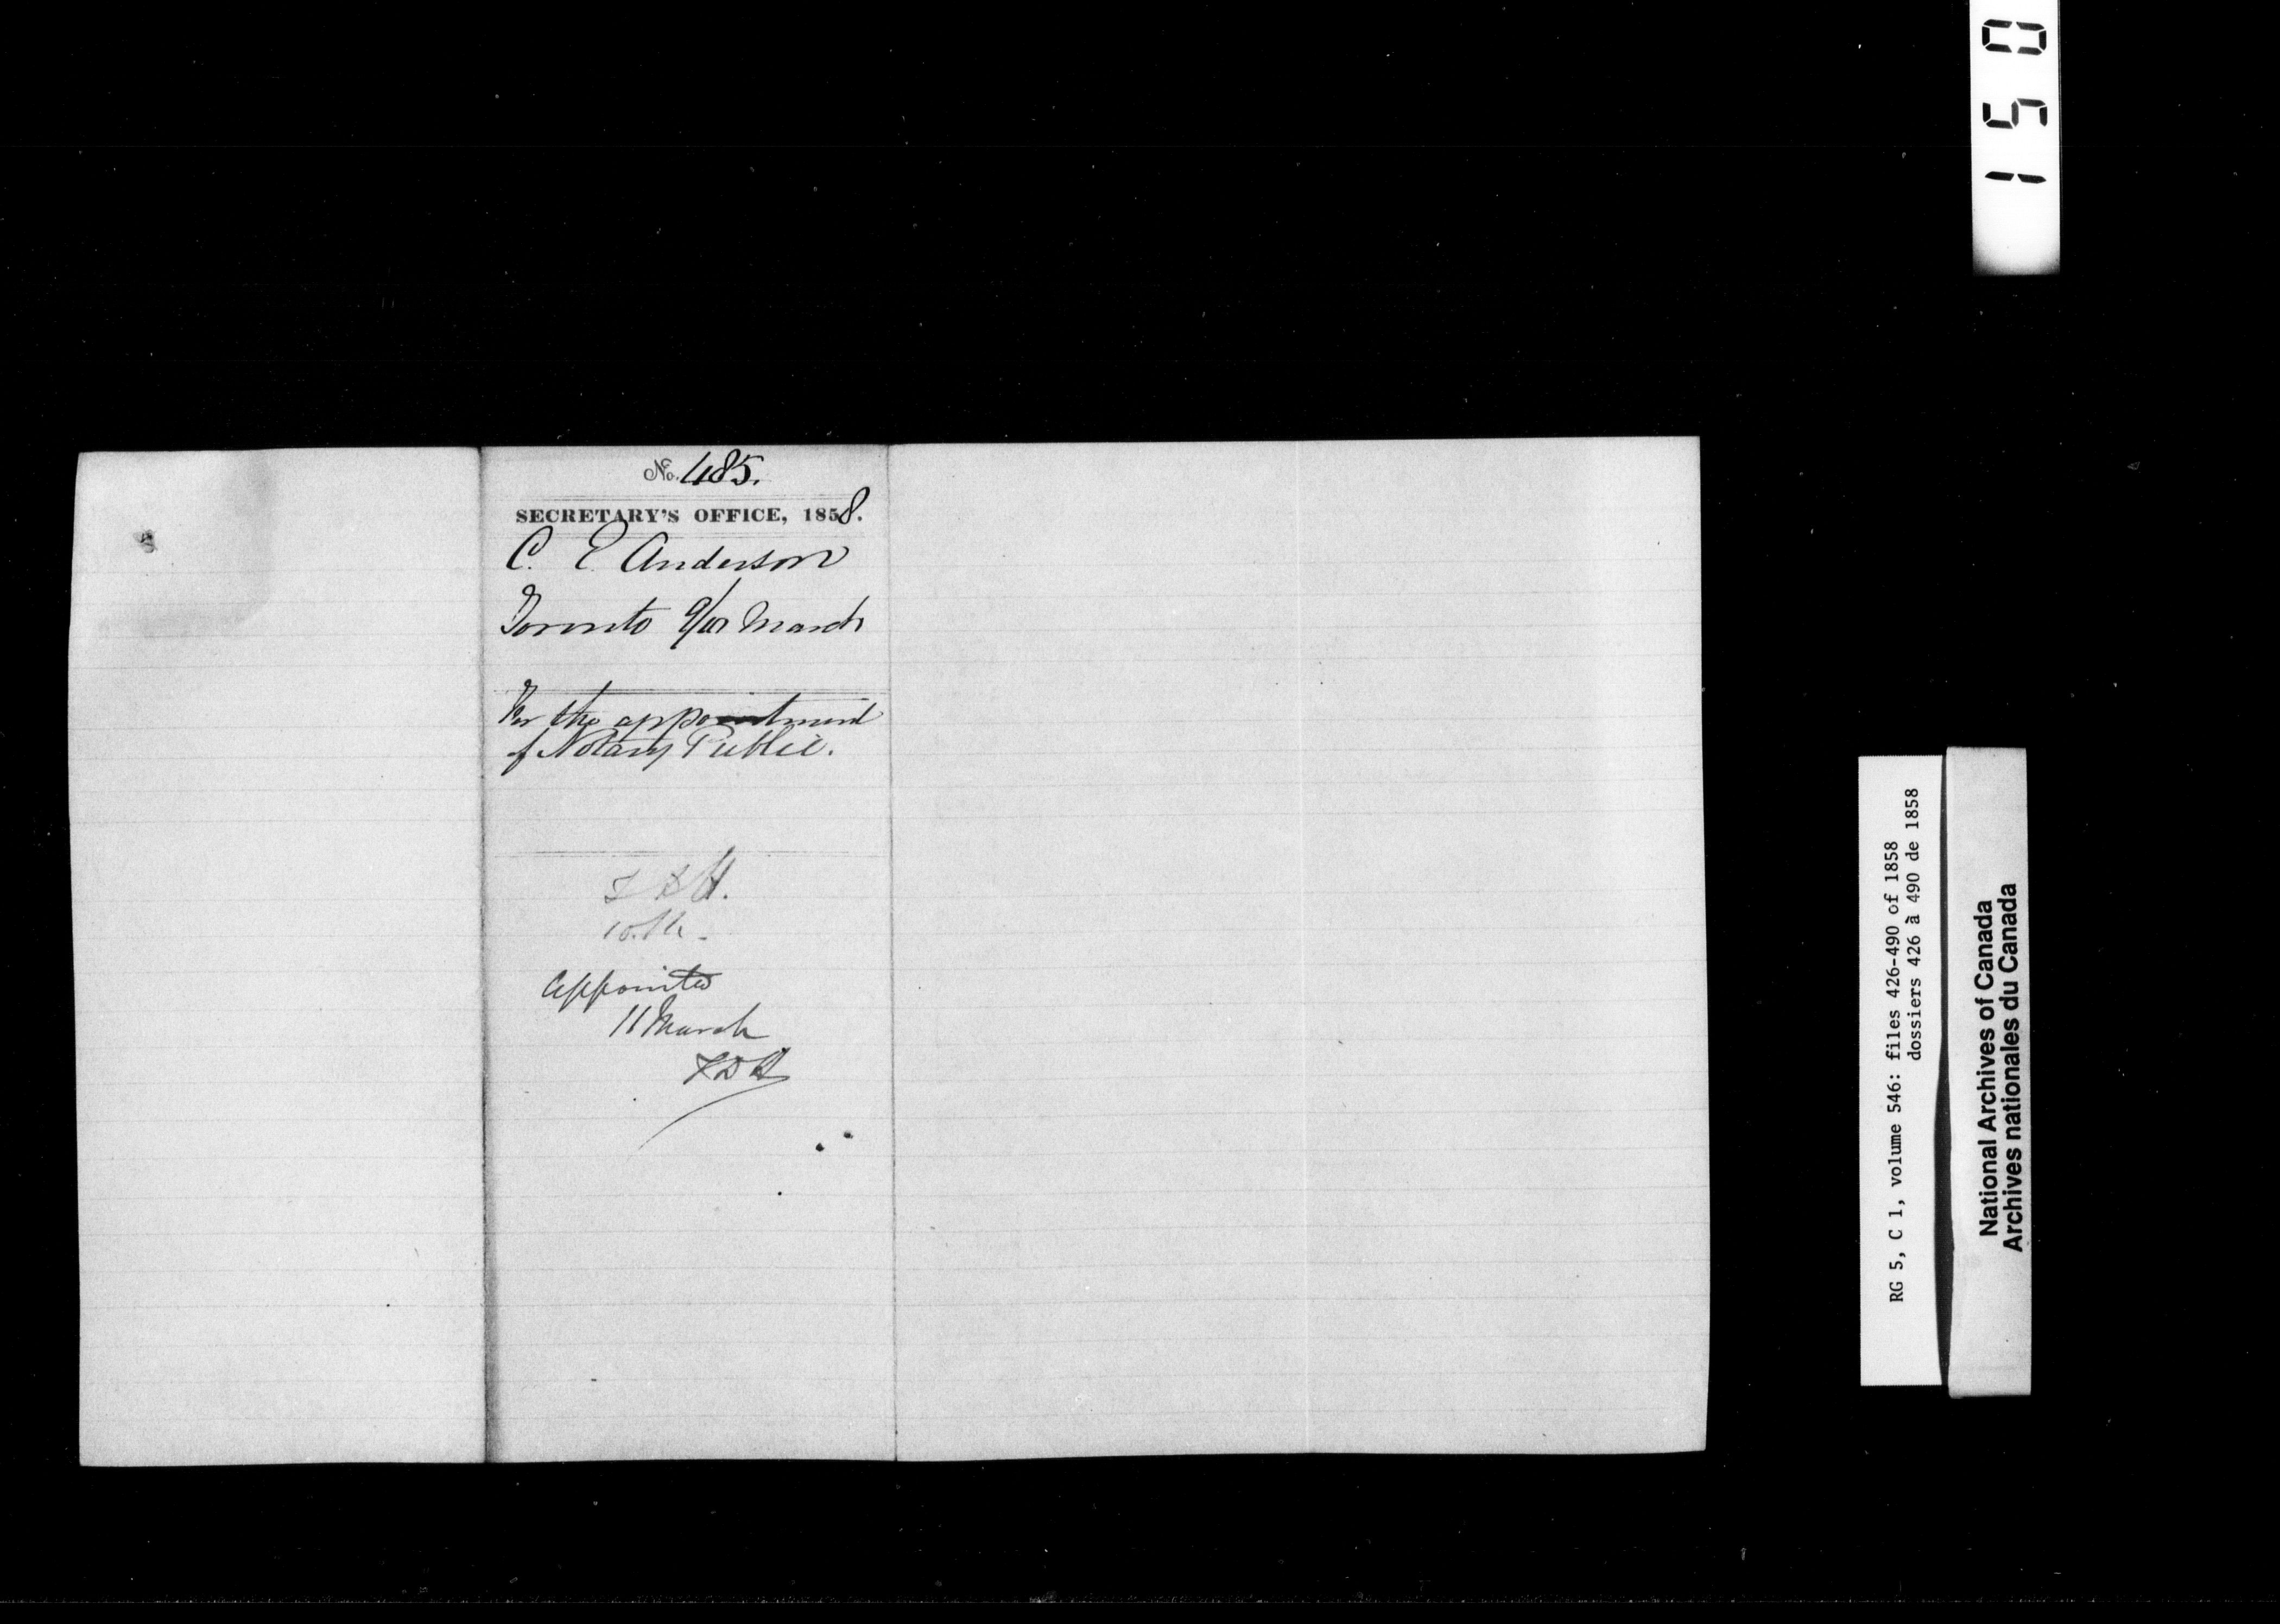 No. 485.
SECRETARY'S OFFICE, 1858.
C. E Anderson
Toronto 9/10 March
For the appointment
of Notary Public.
10. M.
Appointed
11 March
1 5 0
RG 5, C 1, volume 546: files 426-490 of 1858
dossiers 426 à 490 de 1858
National Archives of Canada
Archives nationales du Canada